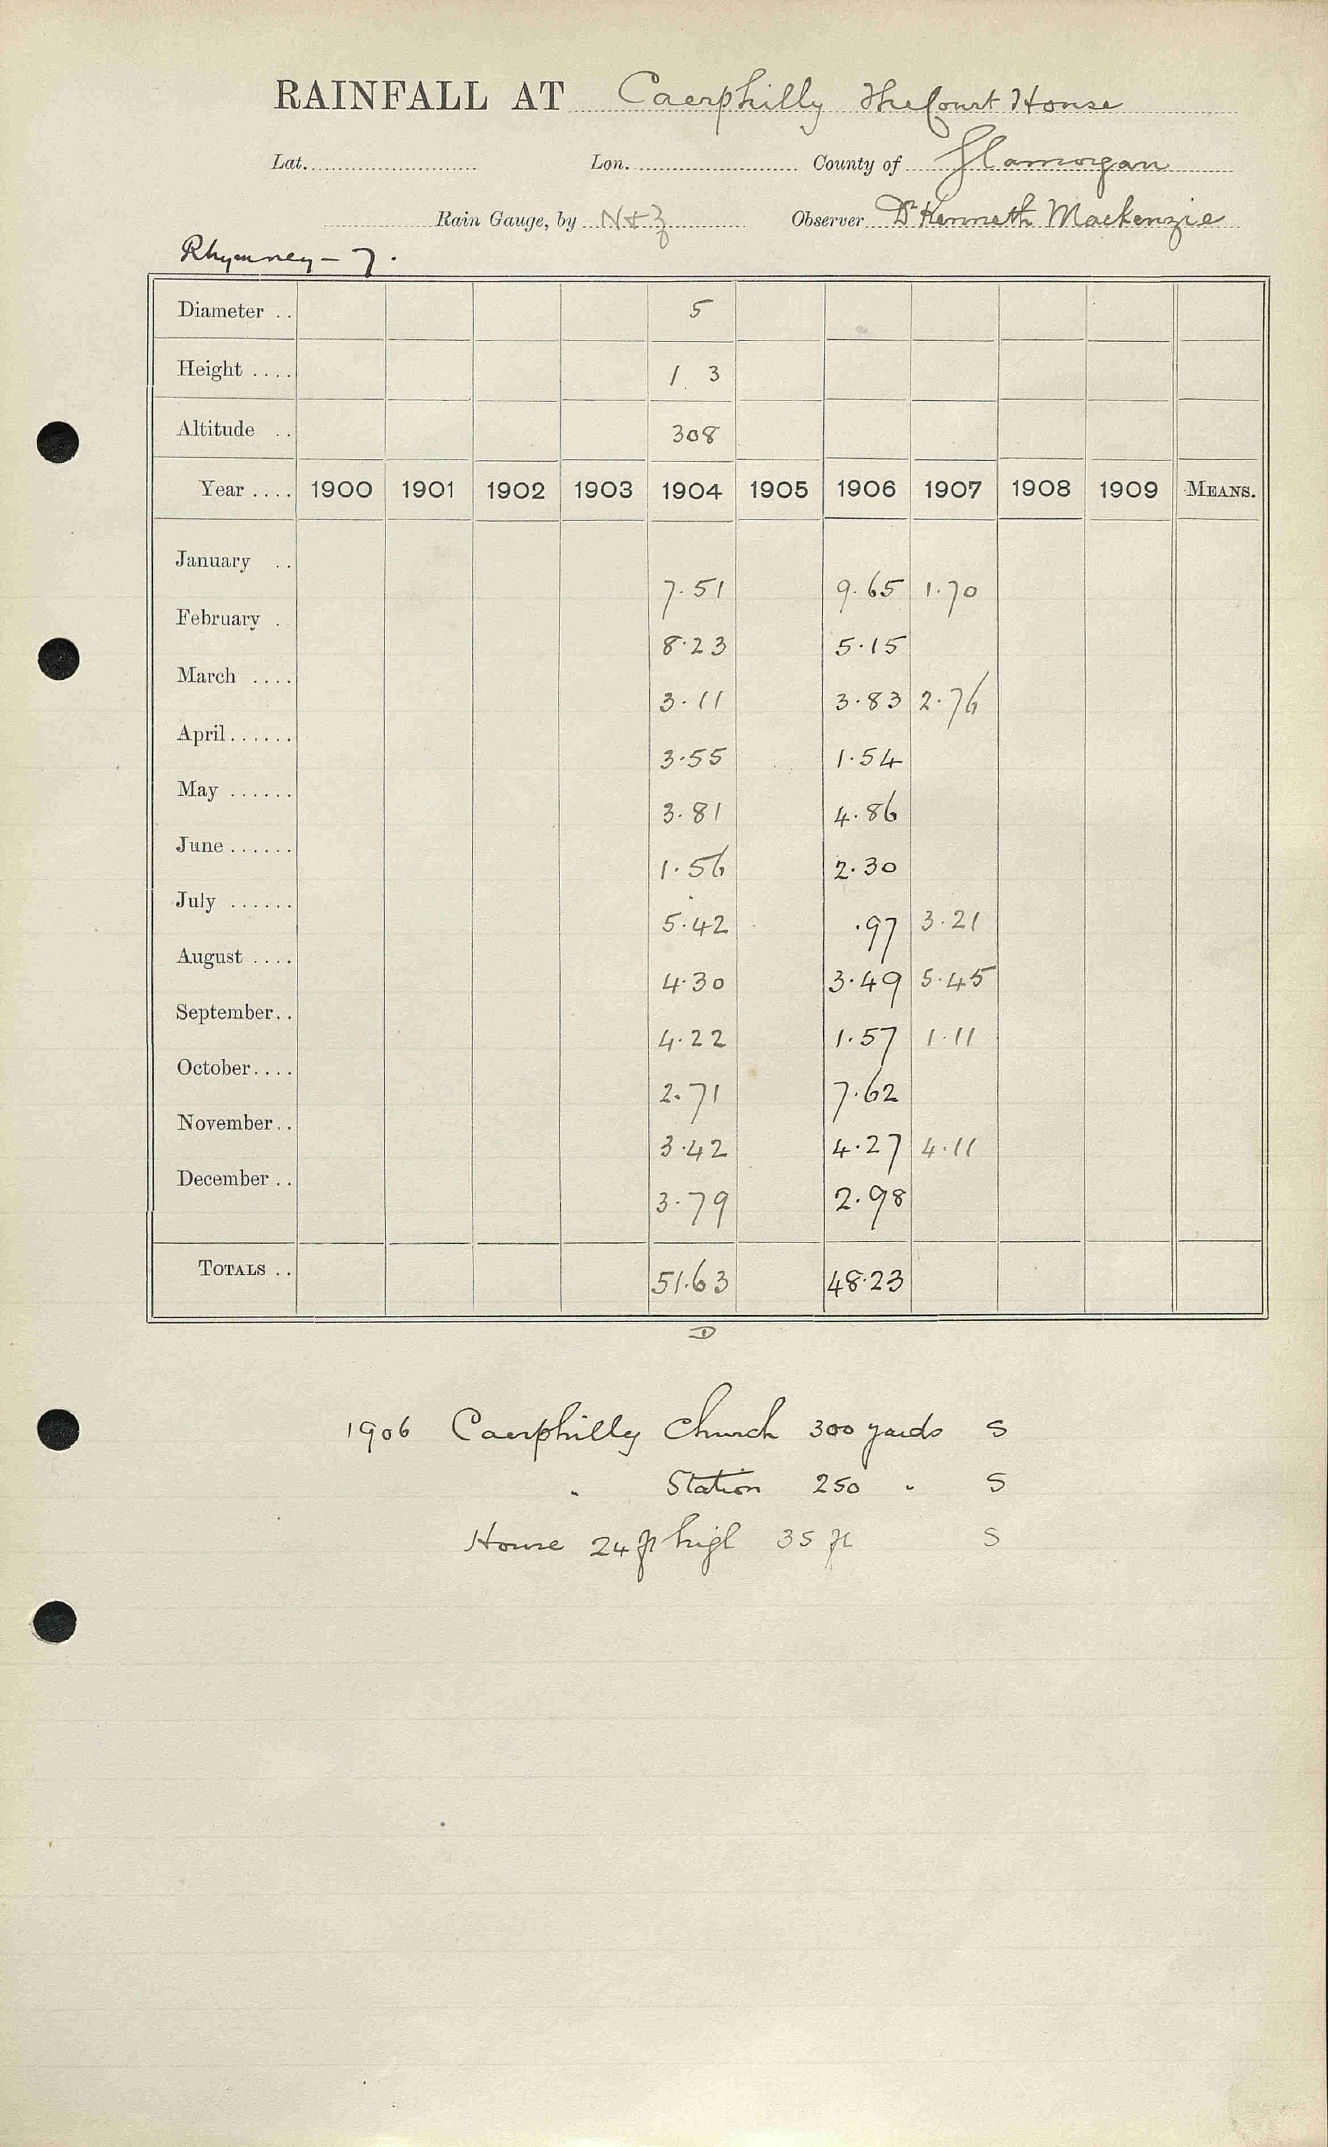 RAINFALL AT Caerphilly The Court House
Lat. Lon. County of Glamorgan
Rain Gauge, by N&Z Observer Dr Kenneth Mackenzie
Rhymney - 7.
Diameter .. 5
Height .... 1 3
Altitude .. 308
Year .... 1900 1901 1902 1903 1904 1905 1906 1907 1908 1909 MEANS.
January .. 7.51 9.65 1.70
February . 8.23 5.15
March .... 3.11 3.83 2.76
April...... 3.55 1.54
May ...... 3.81 4.86
June...... 1.56 2.30
July ...... 5.42 .97 3.21
August .... 4.30 3.49 5.45
September.. 4.22 1.57 1.11
October.... 2.71 7.62
November.. 3.42 4.27 4.11
December .. 3.79 2.98
TOTALS .. 51.63 48.23
D
1906 Caerphilly Church 300 yards S
" Station 250 " S
House 24 ft high 35 ft S